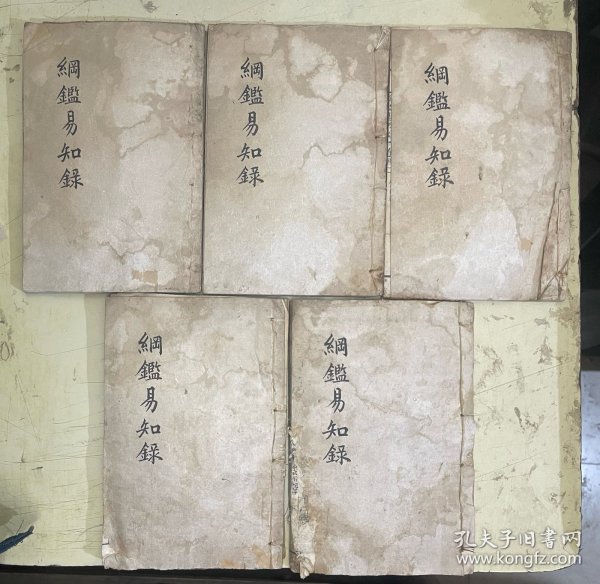 綱鑑易知錄
綱鑑易知錄
綱鑑易知錄
綱鑑易知錄
綱鑑易知錄
孔夫子旧书网
www.kongfz.com